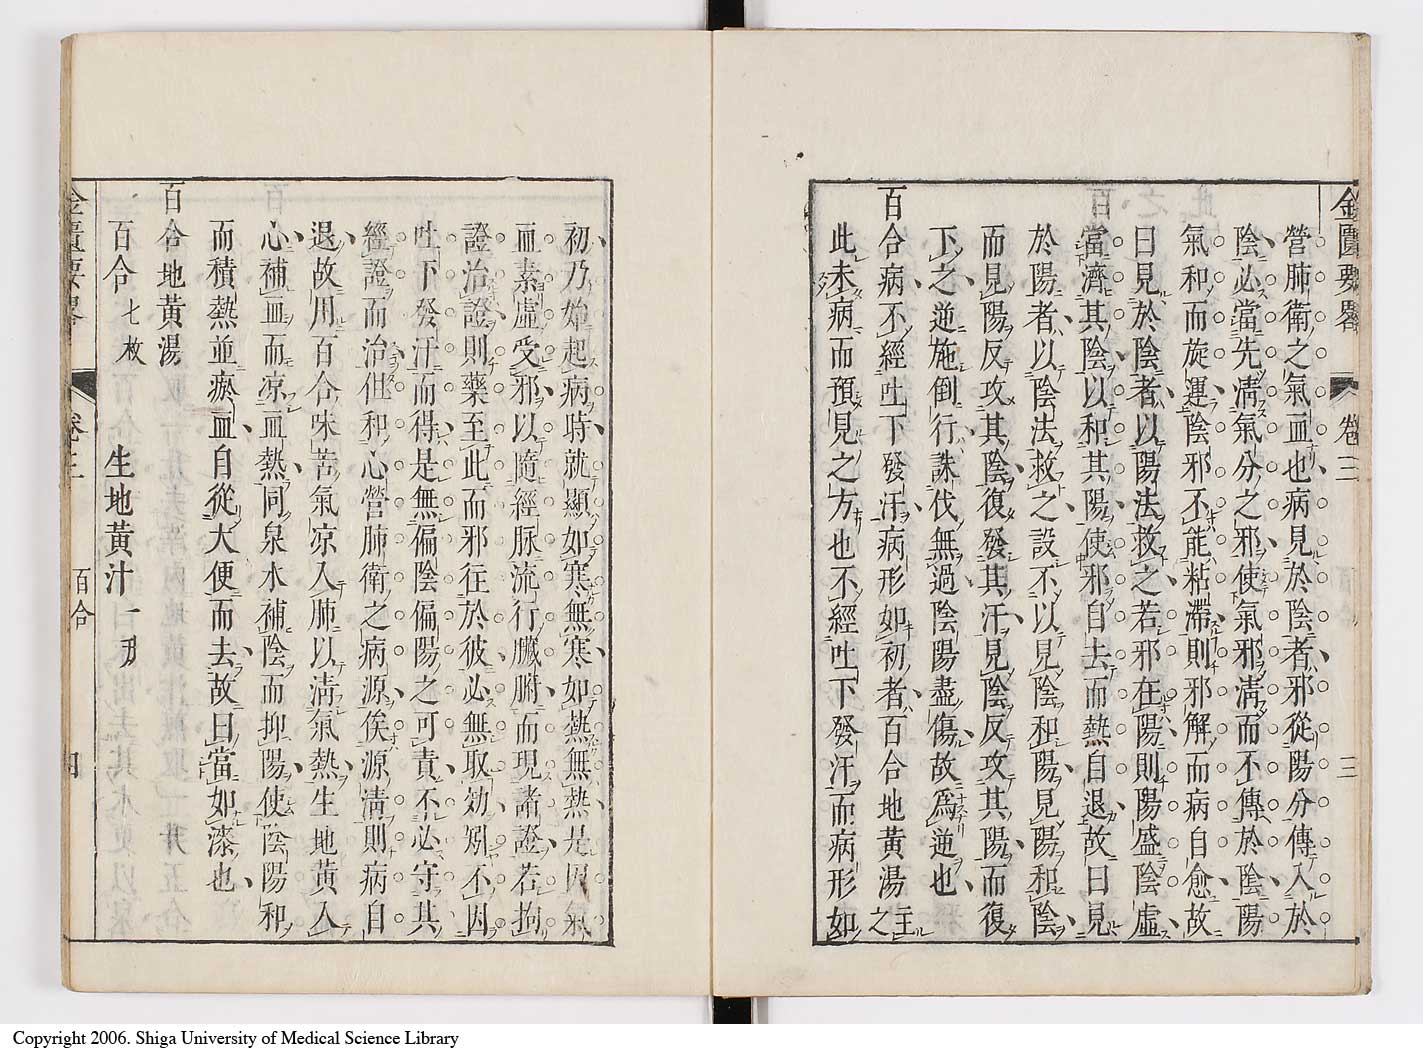 金匱要畧 卷二 三
營肺衛之氣血也病見於陰者邪從陽分傳入於
陰必當先淸氣分之邪使氣邪淸而不傳於陰陽
氣和而旋運陰邪不能粘滯則邪解而病自愈故
曰見於陰者以陽法救之若邪在陽則陽盛陰虛
當濟其陰以和其陽使邪自去而熱自退故曰見
於陽者以陰法救之設不以見陰和陽見陽和陰
而見陽反攻其陰復發其汗見陰反攻其陽而復
下之逆施倒行誅伐無過陰陽盡傷故爲逆也
百合病不經吐下發汗病形如初者百合地黃湯主之
此未病而預見之方也不經吐下發汗而病形如
初乃始起病時就顯如寒無寒如熱無熱是因氣
血素虛受邪以隨經脉流行臟腑而現諸證若拘
證治證則藥至此而邪往於彼必無取効矧不因
吐下發汗而得是無偏陰偏陽之可責不必守其
經證而治但和心營肺衛之病源俟源淸則病自
退故用百合味苦氣凉入肺以淸氣熱生地黃入
心補血而凉血熱同泉水補陰而抑陽使陰陽和
而積熱並瘀血自從大便而去故曰當如漆也
百合地黃湯
百合七枚 生地黃汁一
金匱要畧 卷 百合 四